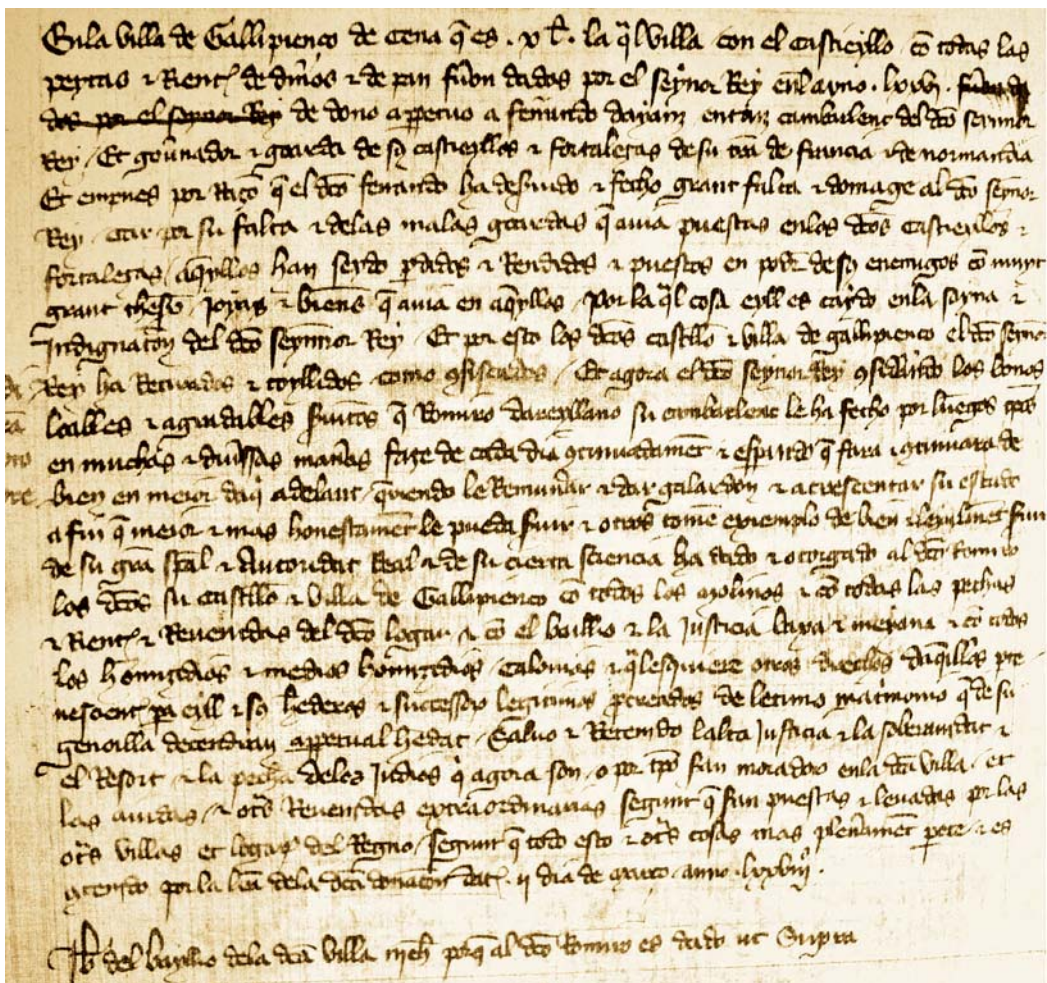 En la villa de Gallipienço de cena q̄ es . x l̃ . la q̄l villa con el castieyllo cō todas las
peytas ⁊ Rient̃ de dīnos ⁊ de pan fūon dados por el seynor Rey en layno . lxxvj . fūon da
dos por el seynor Rey de dono a ppetuo a ferrando dayanz entonz cambarlenc del dc̃o seynnor
Rey . Et gov̄nador ⁊ goarda de sꝯ castieyllos ⁊ fortalezas de su trã de francia ⁊ de normandia
Et empues por Razō q̄ el dc̃o ferrando ha desuido ⁊ fecho grant falta ⁊ domage al dc̃o seynor
Rey car por su falta ⁊ delas malas goardas q̄ auia puestas enlos dc̃os castieyllos ⁊
fortalezas aq̄yllos han seydo pdidos ⁊ Rendidos ⁊ puestos en pod̄ de sꝯ enemigos cō muyt
grant thesō joyas ⁊ bienes q̄ auia en aq̄yllos . por la q̄l cosa eyll es caydo enla sayna ⁊
Indignatiō del dc̃o seynnor Rey . Et por esto los dc̃os castillo ⁊ villa de gallipienço el dc̃o seynor
Rey ha Recurados ⁊ toyllidos como ꝯfiscados . Et agora el dc̃o seynor Rey ꝯsid̄ando los bonos
loables ⁊ agradables s̄uicios q̄ Romiro dareyllano su cambarlenc le ha fecho por luengos tp̄os
en muchas ⁊ div̄ssas man̄as faze de cada dia ꝯtinuadament ⁊ esp̄ando q̄ fara ⁊ ꝯtinuara de
bien en meior daq̄ adelant q̄riendo le Remun̄ar ⁊ dar galardon ⁊ acrescentar su estado
a fin q̄ meior ⁊ mas honestament le pueda s̄uir ⁊ otros tomē exiemplo de bien ⁊ lealmēt s̄uir
de su grã sp̄al ⁊ Autoridat Real ⁊ de su cierta sciencia ha dado ⁊ otorgado al dc̃o Romiro
los dc̃os su castillo ⁊ villa de Gallipienço cō todos los molinos ⁊ cō todas las pechas
⁊ Rient̃ ⁊ Reuenidas del dc̃o logar ⁊ cō el baillio ⁊ la justicia baxa ⁊ meyana ⁊ cō todos
los homizidios ⁊ medios homizidios calonias ⁊ q̄lesquiere otros drechos daq̄llos pte
nescient pa eyll ⁊ sꝯ hederos ⁊ successores legitimos procreados de letimo mat̄monio q̄ de su
genoilla decendiran a ppetual hedat . Saluo ⁊ Retenido lalta justicia ⁊ la soberanidat ⁊
el Resort ⁊ la pecha delos judios q̄ agora son o por tp̄o s̄an moradores enla dc̃a villa et
las aiudas ⁊ ot̄s Reuenidas extraordinarias segunt q̄ s̄an puestas ⁊ leuadas por las
ot̄s villas et logares del Regno segunt q̄ todo esto ⁊ ot̄s cosas mas plen̄ament pece ⁊ es
ꝯtenido por la lr̃a dela dc̃a donatiō dat̃ . ij dia de março anno . lxxviijº .
It̃ del baillio dela dc̃a villa nich̃ porq̄ al dc̃o Romiro es dado ut Supra